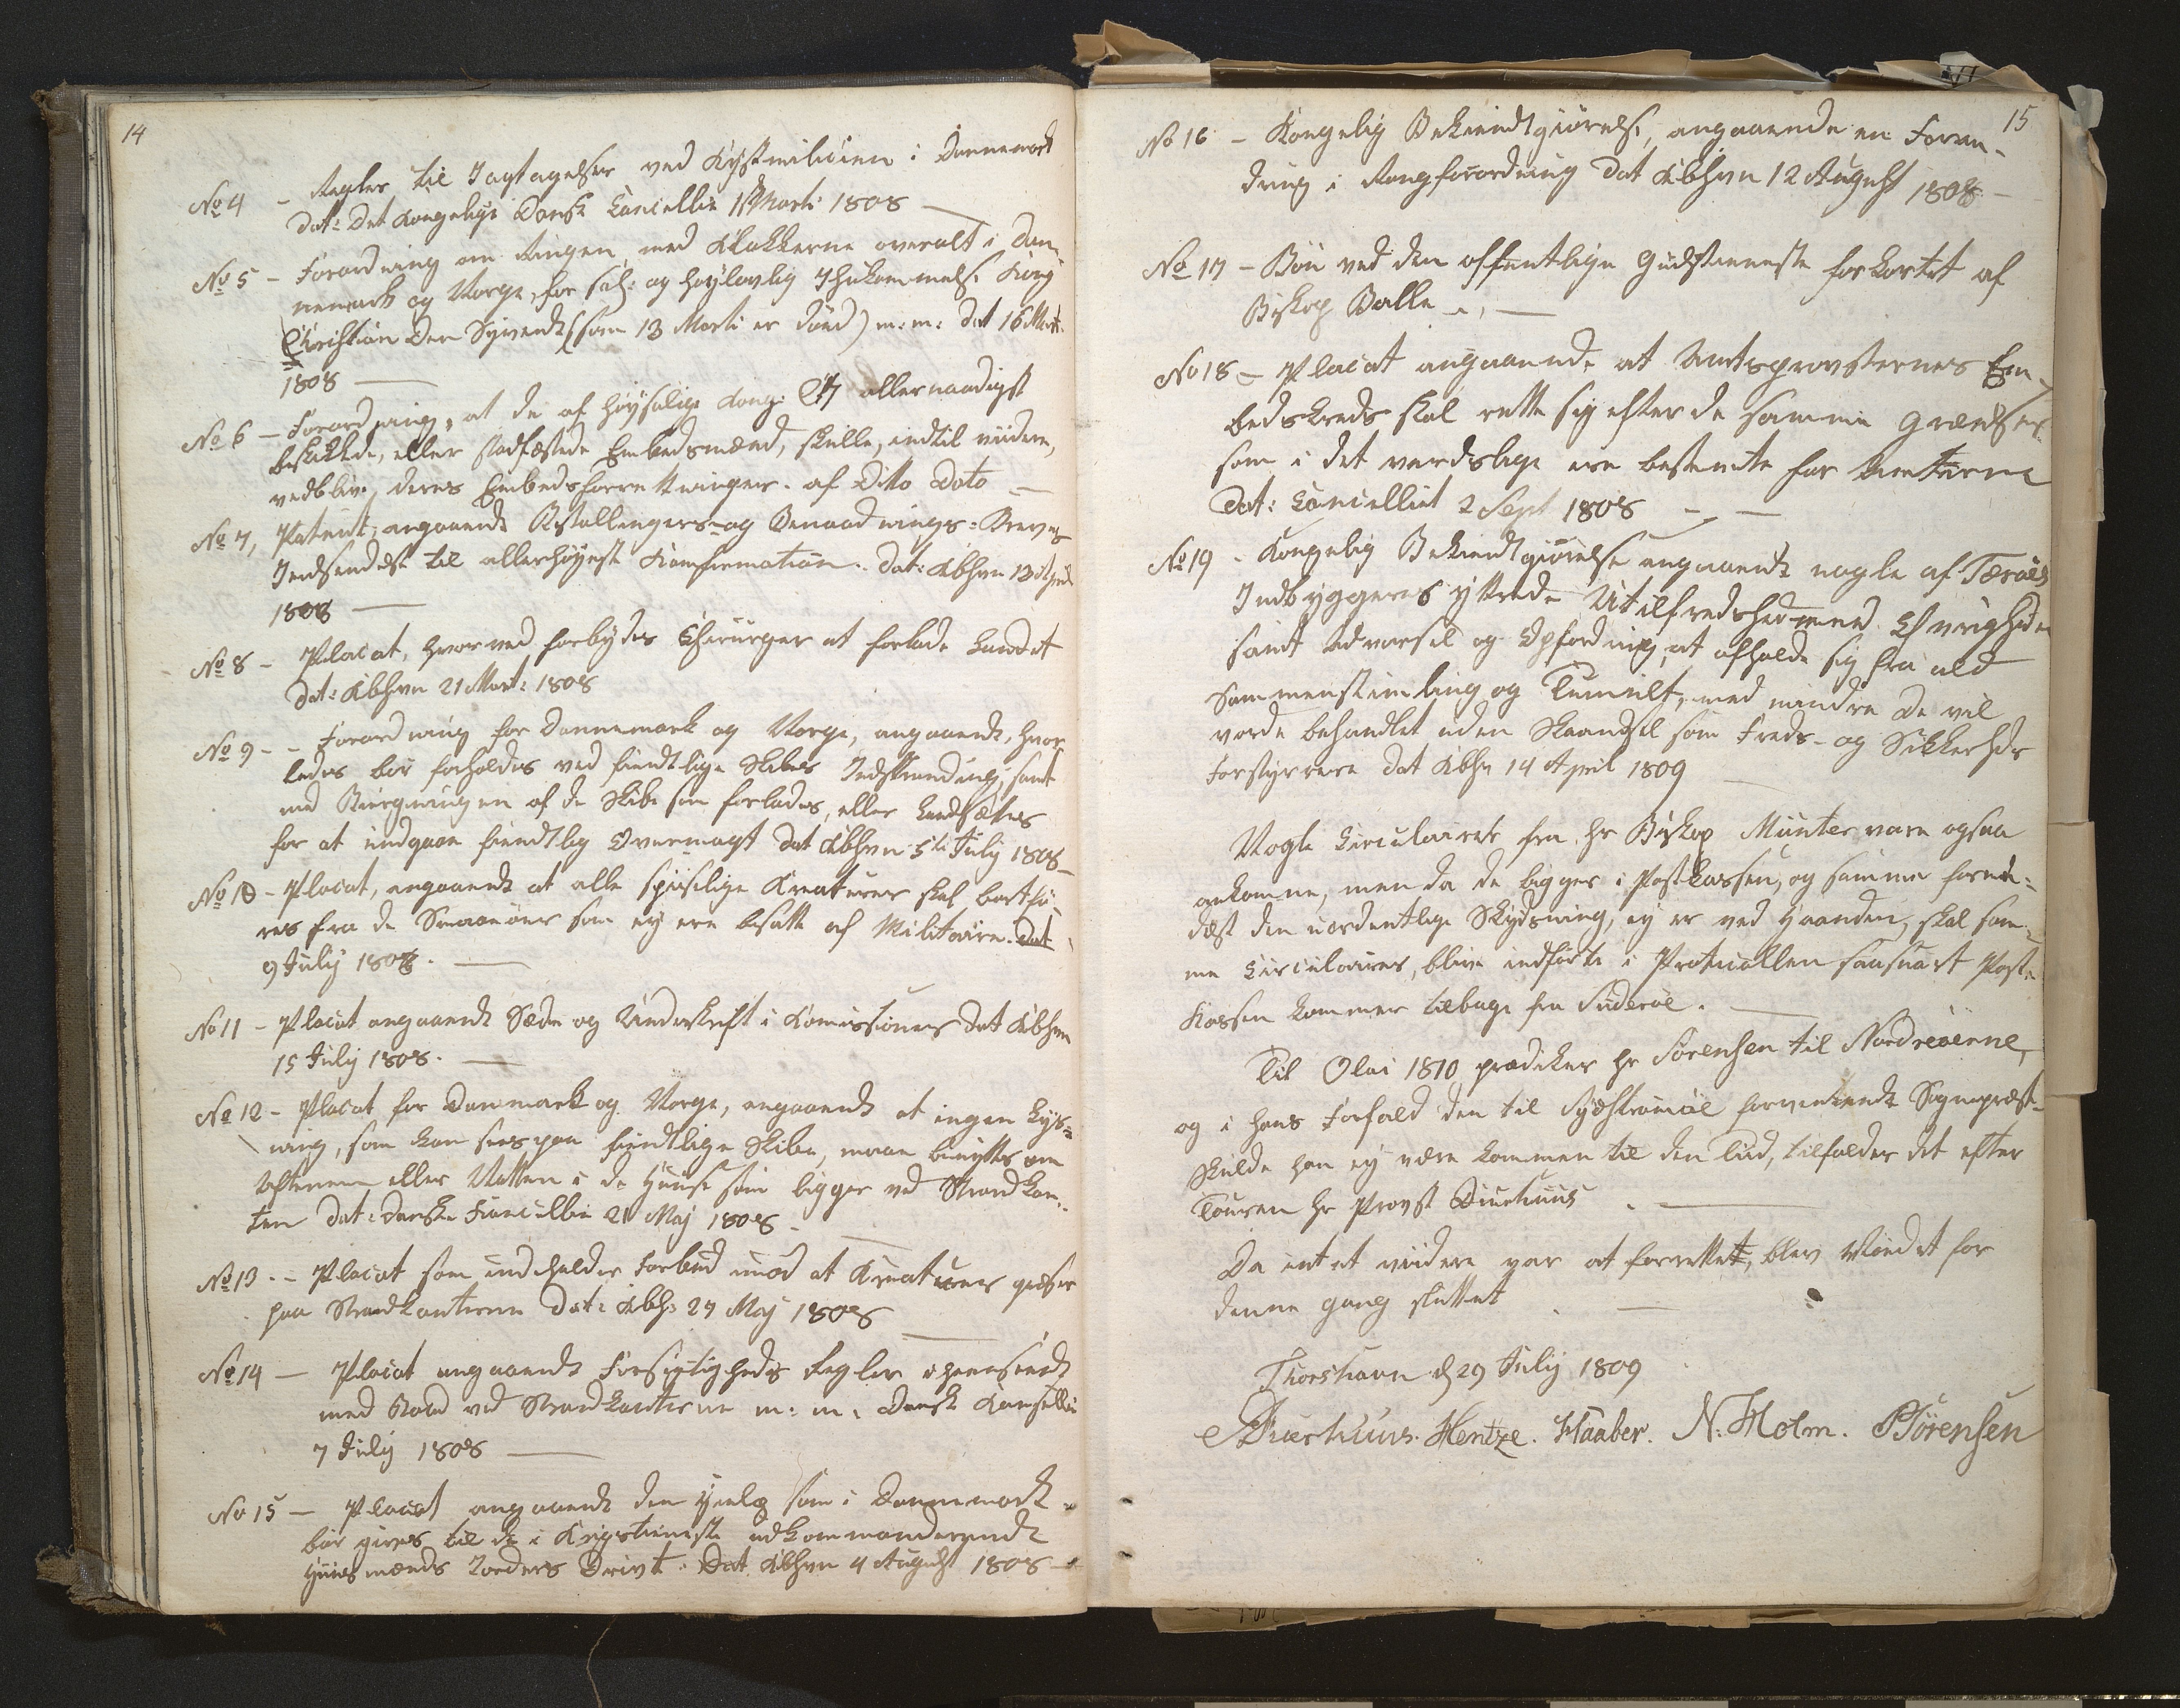 14
No 4 - Regler til Iagtagelser ved Kystmilicien i Dannemark
dat: Det Kongelige Danske Cancellie 1 Marti 1808 —
No 5 - Forordning om Ringen med Klokkerne overalt i Dan-
nemark og Norge, for sal: og høylovlig Ihukommelse Kong
Christian den Syvende (som 13 Marti er død) m: m: dat 16 Mart:
1808 —
No 6 - Forordning, at de af høysalige Kong C 7 allernaadigst
beskikkede, eller stadfæstede Embedsmænd, skulle, indtil viidere,
vedblive deres Embedsforretninger. af Dito Dato —
No 7, Patent, angaaende Bestallingers og Benaadnings-Breves
Indsendelse til allerhøyeste Confirmation. dat: Kbhvn 13 April
1808 —
No 8 - Placat, hvorved forbydes Chirurger at forlade Landet
dat: Kbhvn 21 Mart: 1808
No 9 - - Forordning for Dannemark og Norge, angaaende, hvor
ledes bør forholdes ved fiendtlige Skibes Indstranding, samt
med Biergningen af de Skibe som forlades, eller landsættes
for at undgaae fiendtlig Overmagt dat Kbhvn 5te July 1808
No 10 - Placat, angaaende at alle spiselige Kreaturer skal bortfø-
res fra de Smaaeøer som ey ere besatte af Militaire. Dat
9 July 1808. —
No 11 - Placat angaaende Sæde og Underskrift i Comissioner dat Kbhvn
15 July 1808. —
No 12 - Placat for Danmark og Norge, angaaende at ingen Lys-
ning, som kan sees paa fiendtlige Skibe, maae benyttes om
Aftenen eller Natten i de Huuse som ligger ved Strandkan-
ten dat: danske Cancellie 21 Maj 1808.
No 13 - - Placat som indeholder Forbud imod at Kreaturer græsser
paa Strandkanterne dat: Kbh: 24 Maj 1808
No 14 — Placat angaaende Forsigtigheds Regler i henseende
med Baad ved Strandkanterne m: m: Dansk Cancellie
7 July 1808 —
No 15 — Placat angaaende den Hielp som i Dannemark
bør gives til de i Krigstieneste udkommanderende
Huusmænds Jorders Drivt: Dat Kbhvn 4 August 1808 —
15
No 16 - Kongelig Bekiendtgiørelse, angaaende en Foran-
dring i Rangforordning dat Kbhvn 12 August 1808 —
No 17 - Bøn ved den offentlige Gudstieneste forkortet af
Biskop Balle —
No 18 - Placat angaaende at Amtsprovsternes Em-
bedskreds skal rette sig efter de samme Grændser
som i det verdslige ere bestemte for Amterne
dat: Cancelliet 2 Sept 1808 —
No 19 - Kongelig Bekiendtgiørelse angaaende nogle af Færøes
Indbyggeres yttrede Utilfredshed med Øvrigheden
samt Advarsel og Opfordring, at afholde sig fra ald
Sammenstimling og Tumult, med mindre de vil
vorde behandlet uden Skaansel som Freds- og Sikkerheds
Forstyrrere dat Kbhn 14 April 1809
Nogle Circulairer fra hr Biskop Münter vare ogsaa
ankomne, men da de ligger i Postkassen, og samme formed-
delst den uordentlige Skydsning, ey er ved Haanden, skal sam-
me Circulairer, blive indførte i Protocollen saasnart Post-
Kassen kommer tilbage fra Suderøe.
Til Olai 1810 prædiker hr Sørensen til Nordreøerne,
og i hans Forfald den til Sydstrømøe forventende Sognepræst
skulde han ey være kommen til den Tiid, tilfalder det efter
Touren hr Provst Duerhuus —
Da intet viidere var at forrette, blev Mødet for
denne gang sluttet —
Thorshavn d 29 July 1809
Duerhuus. Hentze. Haaber. N. Holm. PSørensen